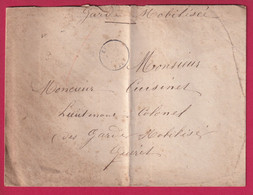 Garde Mobilisée
Monsieur
Monsieur Cuisinet
Lieutenant Colonel
Garde Mobilisée
Guéret